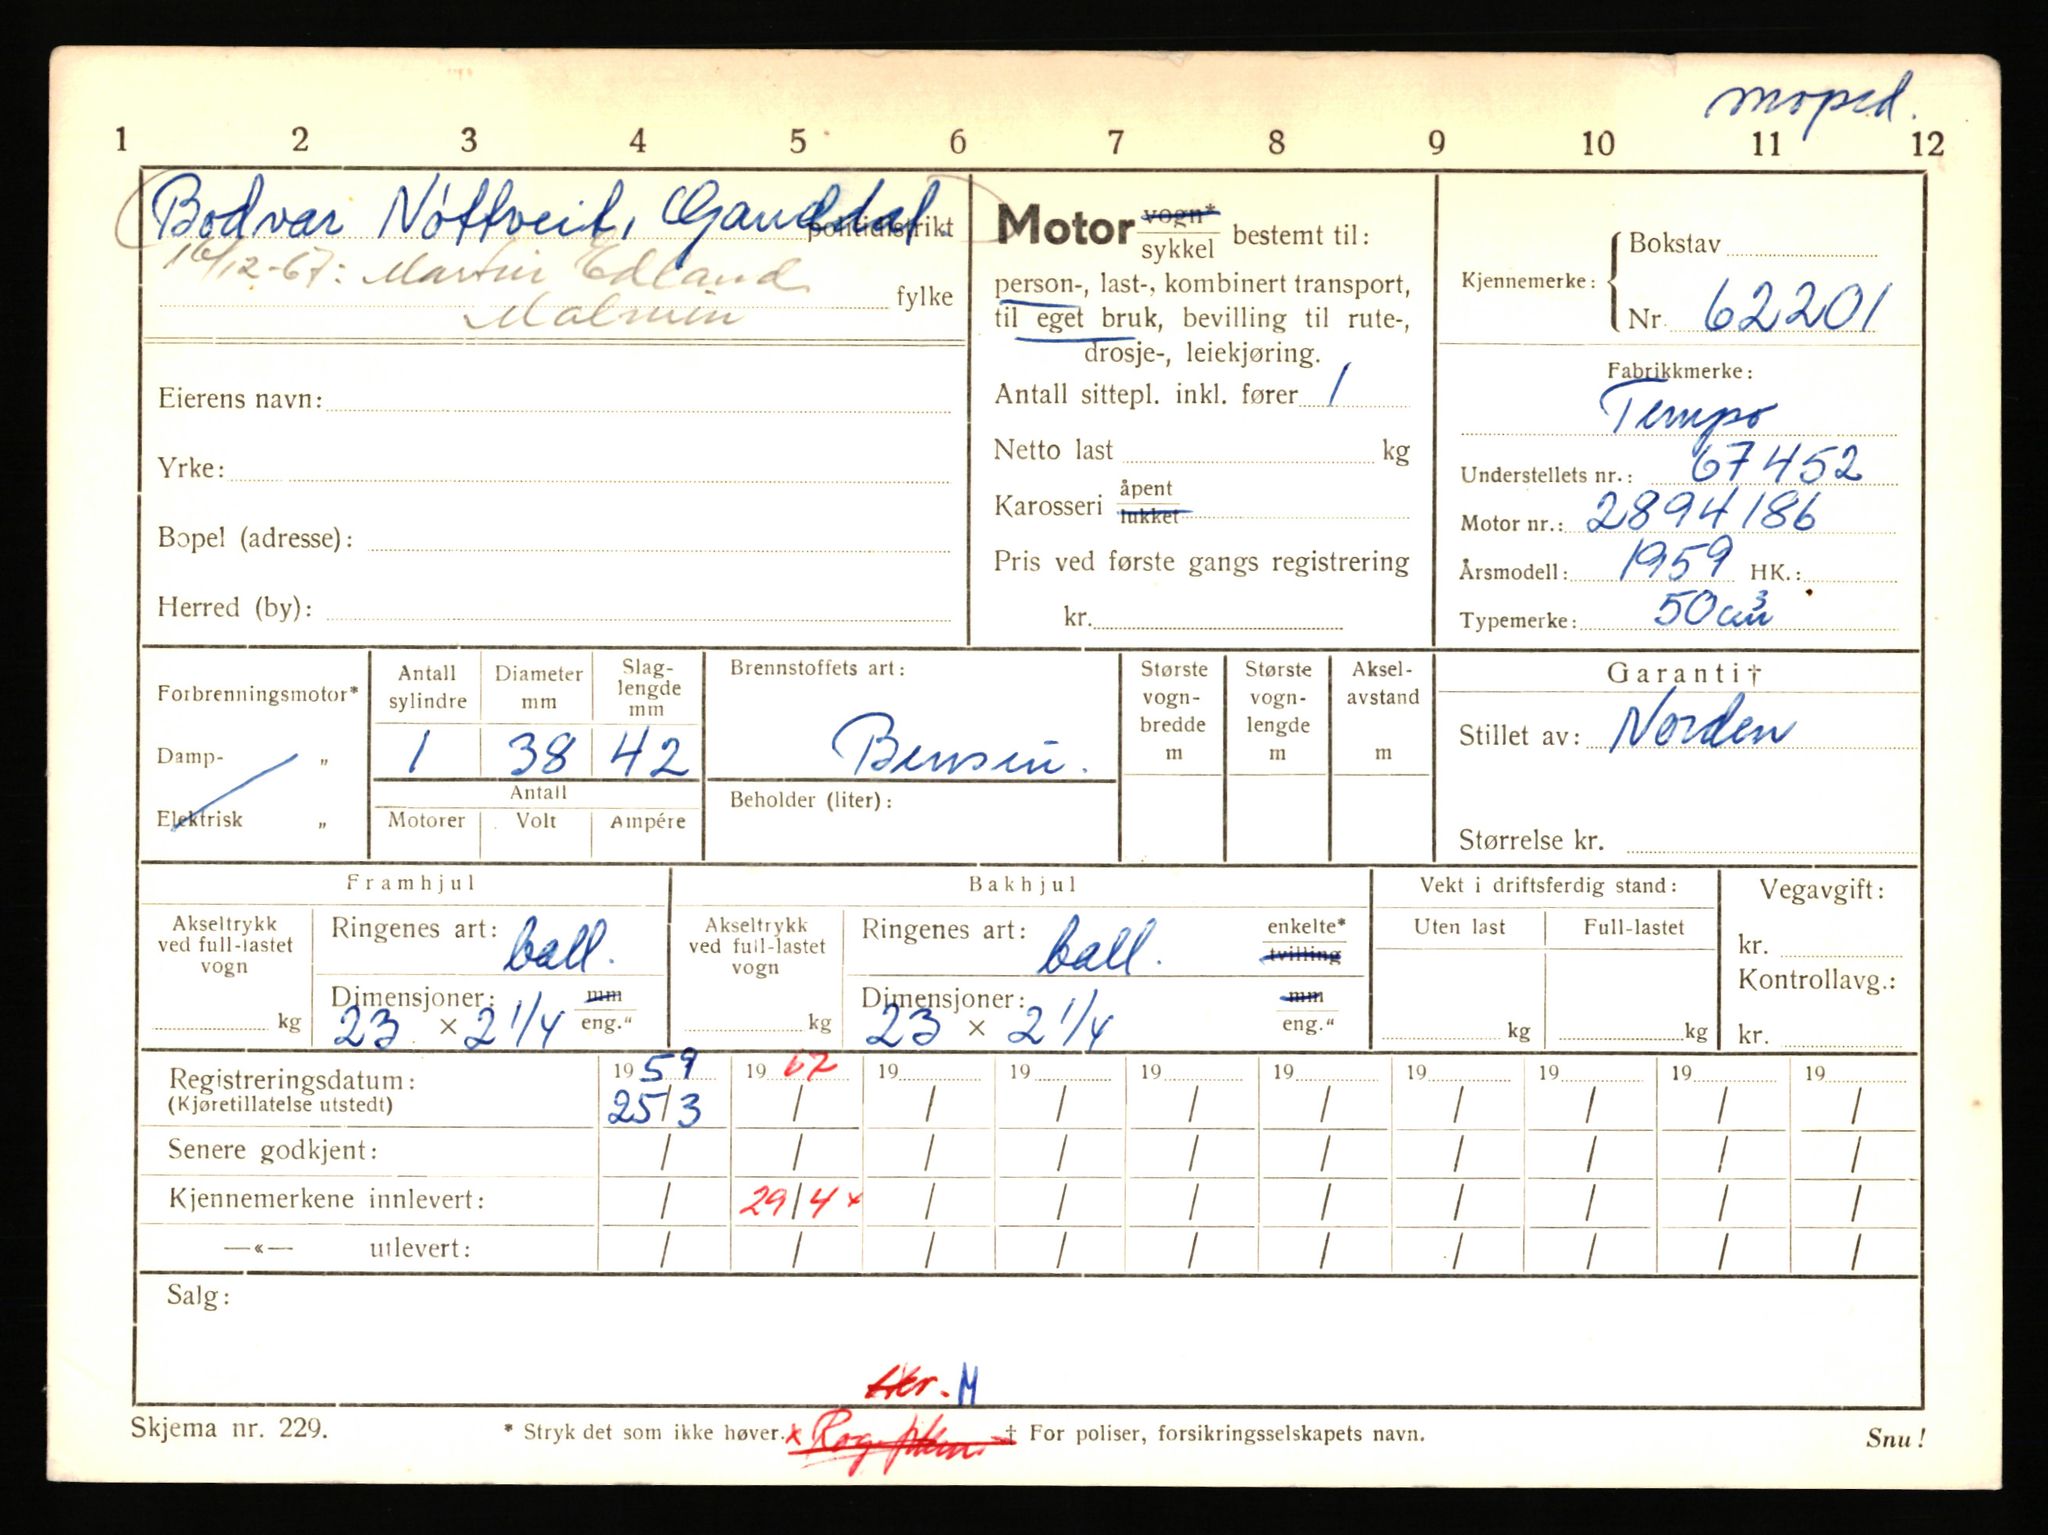 moped.
1 2 3 4 5 6 7 8 9 10 11 12
Bodvar Nøttveit, Ganddal.
politidistrikt
16/12-67: Martin Edland
fylke
Malmin
Eierens navn:
Yrke:
Bopel (adresse):
Herred (by):
Motor vogn*/sykkel bestemt til:
person-, last-, kombinert transport,
til eget bruk, bevilling til rute-,
drosje-, leiekjøring.
Antall sittepl. inkl. fører 1
Netto last kg
Karosseri åpent/lukket
Pris ved første gangs registrering
kr.
Kjennemerke: { Bokstav
Nr. 62201
Fabrikkmerke:
Tempo
Understellets nr.: 67452
Motor nr.: 2894186
Årsmodell: 1959 HK.:
Typemerke: 50 cm³
Forbrenningsmotor*
Damp- „
Elektrisk „
Antall sylindre Diameter mm Slag-lengde mm
1 38 42
Antall
Motorer Volt Ampére
Brennstoffets art:
Bensin.
Beholder (liter):
Største vogn-bredde m
Største vogn-lengde m
Aksel-avstand m
Garanti†
Stillet av: Norden
Størrelse kr.
Framhjul
Akseltrykk ved full-lastet vogn kg
Ringenes art: ball.
Dimensjoner: mm/eng."
23 × 2 1/4
Bakhjul
Akseltrykk ved full-lastet vogn kg
Ringenes art: ball. enkelte*/tvilling
Dimensjoner: mm/eng."
23 × 2 1/4
Vekt i driftsferdig stand:
Uten last Full-lastet
kg kg
Vegavgift:
kr.
Kontrollavg.:
kr.
19 59 19 67 19 19 19 19 19 19 19 19
Registreringsdatum: 25/3 / / / / / / / / /
(Kjøretillatelse utstedt)
Senere godkjent: / / / / / / / / / /
Kjennemerkene innlevert: / 29/4 x / / / / / / / /
—«— utlevert: / / / / / / / / / /
Salg:
M
Skjema nr. 229.
* Stryk det som ikke høver. x
† For poliser, forsikringsselskapets navn.
Snu!